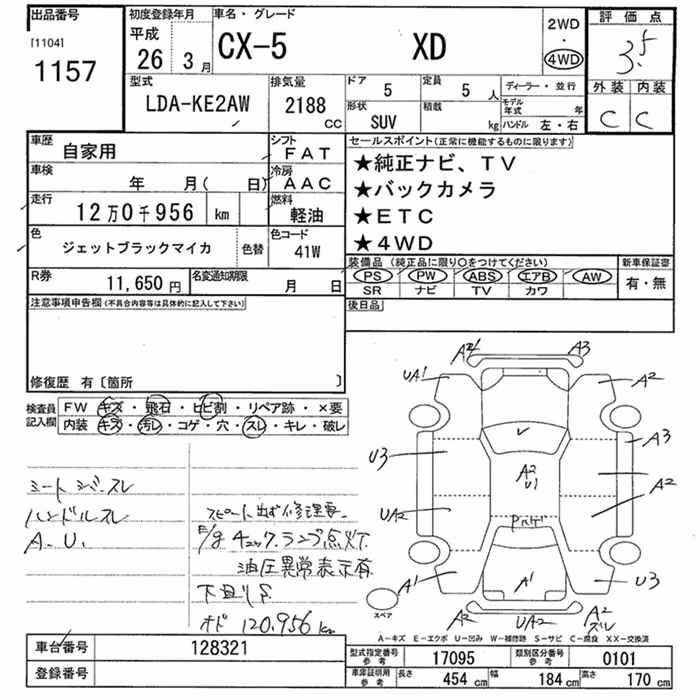 出品番号
[1104]
1157
初度登録年月
平成
26年 3月
車名・グレード
CX-5 XD
2WD
・
4WD
評価点
3.5
外装 内装
C C
型式
LDA-KE2AW
排気量
2188 CC
ドア 5
定員 5人
形状 SUV
積載 kg
ディーラー・並行
モデル年式 年
ハンドル 左・右
車歴 自家用
シフト FAT
車検 年 月( 日)
冷房 AAC
走行 12万0千956 km
燃料 軽油
色 ジェットブラックマイカ 色替
色コード 41W
R券 11,650円
名変通知期限 月 日
セールスポイント(正常に機能するものに限ります)
★純正ナビ、TV
★バックカメラ
★ETC
★4WD
装備品 (純正品に限り○をつけてください)
PS PW ABS エアB AW
SR ナビ TV カワ
新車保証書
有・無
後日品
注意事項申告欄(不具合内容等は具体的に記入して下さい)
修復歴 有〔箇所 〕
検査員記入欄
FW キズ・飛石・ヒビ割・リペア跡・×要
内装 キズ・汚レ・コゲ・穴・スレ・キレ・破レ
ハンドルスレ
A.U.
修理要
チェックランプ点灯
油圧異常表示有
オド 120,956 km
A2 A3
UA1 A2
U3 A3
A2 U1
UA2 A2
A1 A1 U3
A2 UA2 A2
スレ
スペア
A-キズ E-エクボ U-凹み W-補修跡 S-サビ C-腐食 XX-交換済
車台番号 128321
登録番号
型式指定番号 参考 17095
類別区分番号 参考 0101
車庫証明用 参考
長さ 454 cm
幅 184 cm
高さ 170 cm